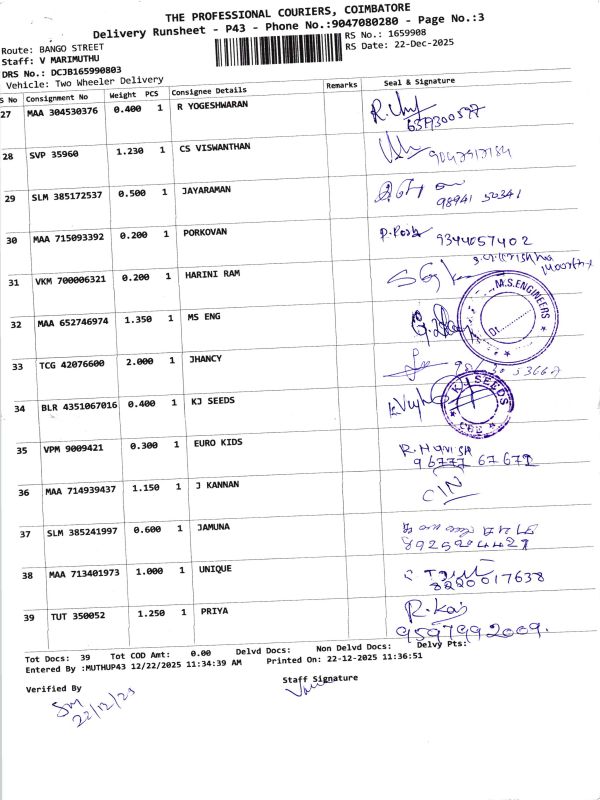 THE PROFESSIONAL COURIERS, COIMBATORE
Delivery Runsheet - P43 - Phone No.:9047080280 - Page No.:3
Route: BANGO STREET
RS No.: 1659908
Staff: V MARIMUTHU
RS Date: 22-Dec-2025
DRS No.: DCJB165990803
Vehicle: Two Wheeler Delivery
S No Consignment No Weight PCS Consignee Details Remarks Seal & Signature
27 MAA 304530376 0.400 1 R YOGESHWARAN
28 SVP 35960 1.230 1 CS VISWANTHAN
29 SLM 385172537 0.500 1 JAYARAMAN
98941 50341
30 MAA 715093392 0.200 1 PORKOVAN
9344057402
31 VKM 700006321 0.200 1 HARINI RAM
32 MAA 652746974 1.350 1 MS ENG
M.S.ENGINEERS
33 TCG 42076600 2.000 1 JHANCY
34 BLR 4351067016 0.400 1 KJ SEEDS
KJ SEEDS
CBE
35 VPM 9009421 0.300 1 EURO KIDS
36 MAA 714939437 1.150 1 J KANNAN
37 SLM 385241997 0.600 1 JAMUNA
38 MAA 713401973 1.000 1 UNIQUE
8220017638
39 TUT 350052 1.250 1 PRIYA
9597992009.
Tot Docs: 39 Tot COD Amt: 0.00 Delvd Docs: Non Delvd Docs: Delvy Pts:
Entered By :MUTHUP43 12/22/2025 11:34:39 AM Printed On: 22-12-2025 11:36:51
Verified By
Staff Signature
22/12/25